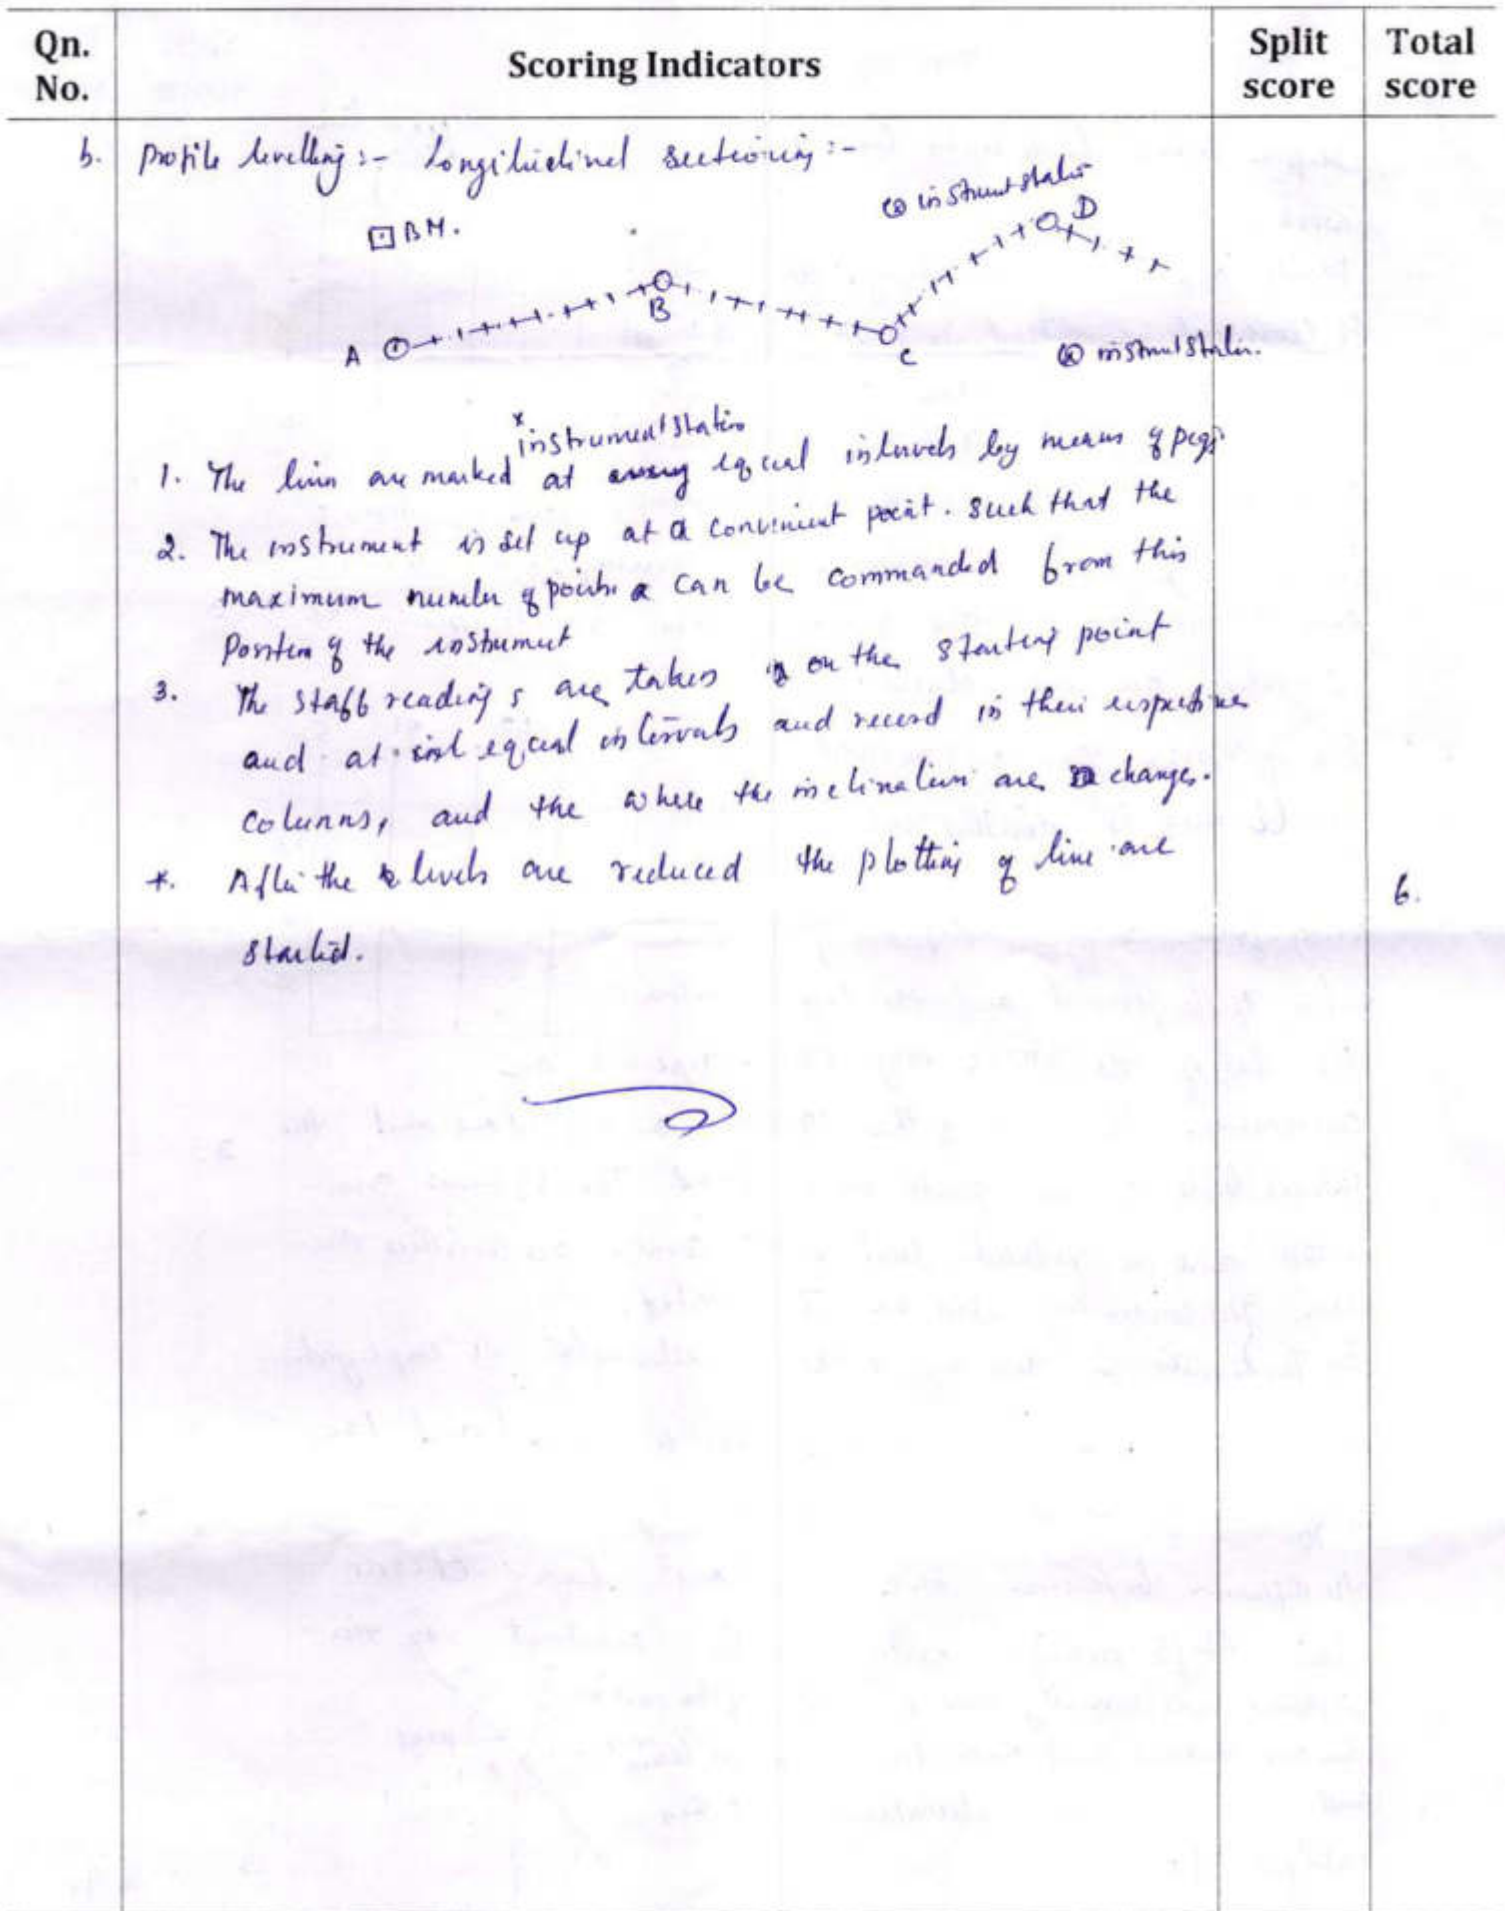 Qn. No. Scoring Indicators Split score Total score
b. Profile levelling :- Longitudinal sectioning :-
BM.
instrument station
A B C D
instrument station.
instrument station
1. The line are marked at equal intervals by means of pegs
2. The instrument is set up at a convenient point. such that the
maximum number of points can be commanded from this
Position of the instrument
3. The staff readings are taken on the starting point
and at equal intervals and record in their respective
columns, and the where the inclination are changes.
*. After the levels are reduced the plotting of line are
started.
6.